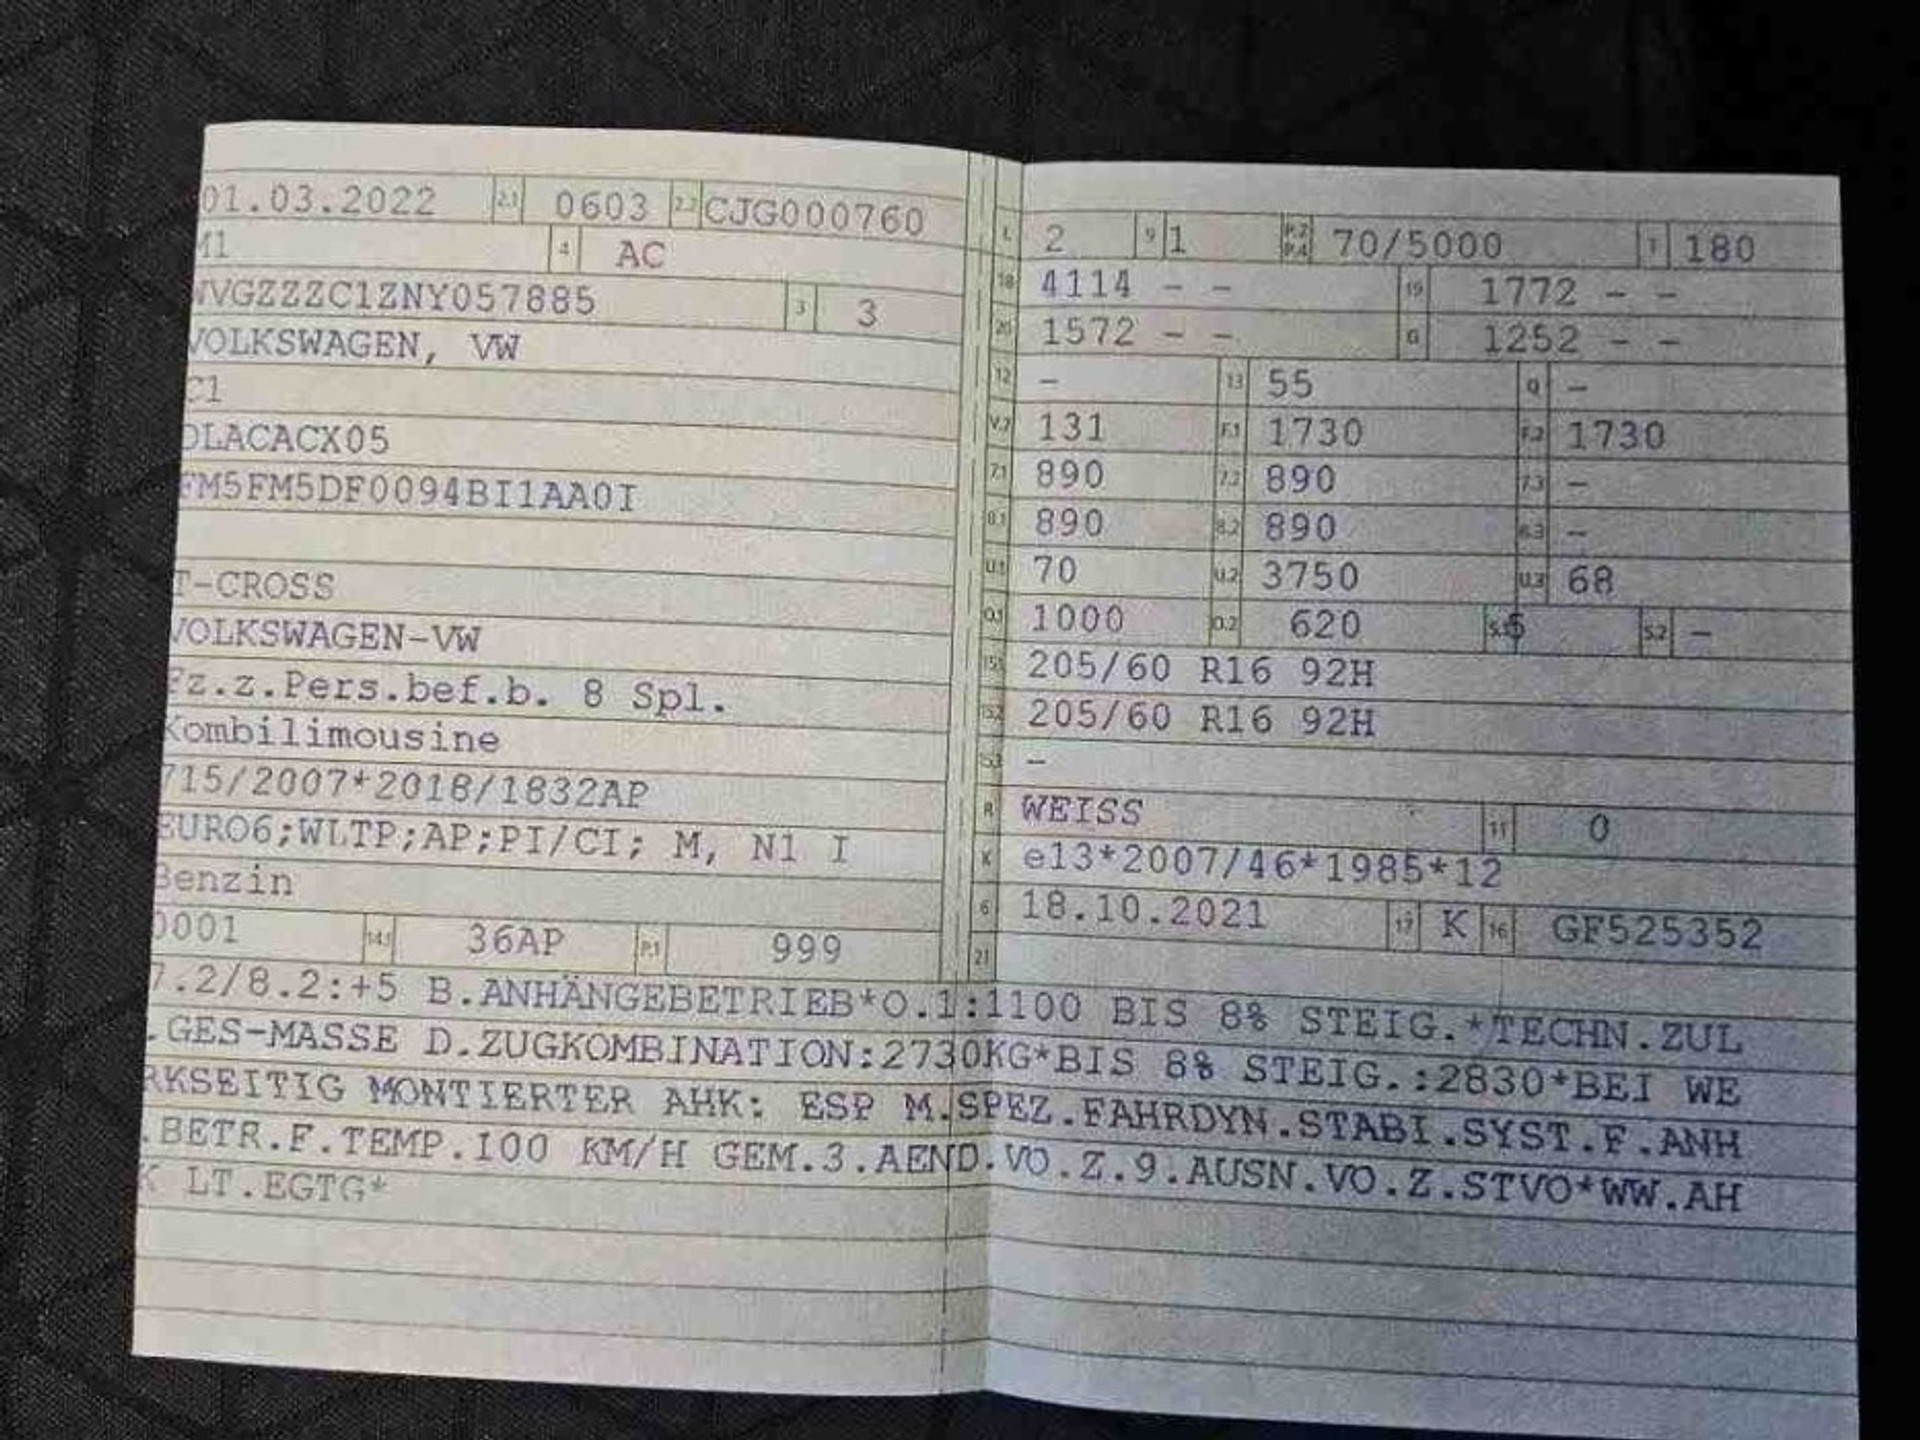 01.03.2022 2.1 0603 2.2 CJG000760
M1 4 AC
WVGZZZC1ZNY057885 3 3
VOLKSWAGEN, VW
C1
DLACACX05
FM5FM5DF0094BI1AA0I
T-CROSS
VOLKSWAGEN-VW
Fz.z.Pers.bef.b. 8 Spl.
Kombilimousine
715/2007*2018/1832AP
EURO6;WLTP;AP;PI/CI; M, N1 I
Benzin
0001 14.1 36AP P.1 999
L 2 9 1 P.2 P.4 70/5000 T 180
18 4114 - - 19 1772 - -
20 1572 - - G 1252 - -
12 - 13 55 Q -
V.7 131 F.1 1730 F.2 1730
7.1 890 7.2 890 7.3 -
8.1 890 8.2 890 8.3 -
U.1 70 U.2 3750 U.3 68
O.1 1000 O.2 620 S.1 5 S.2 -
15.1 205/60 R16 92H
15.2 205/60 R16 92H
15.3 -
R WEISS 11 0
K e13*2007/46*1985*12
6 18.10.2021 17 K 16 GF525352
21
7.2/8.2:+5 B.ANHÄNGEBETRIEB*O.1:1100 BIS 8% STEIG.*TECHN.ZUL
.GES-MASSE D.ZUGKOMBINATION:2730KG*BIS 8% STEIG.:2830*BEI WE
RKSEITIG MONTIERTER AHK: ESP M.SPEZ.FAHRDYN.STABI.SYST.F.ANH
.BETR.F.TEMP.100 KM/H GEM.3.AEND.VO.Z.9.AUSN.VO.Z.STVO*WW.AH
K LT.EGTG*